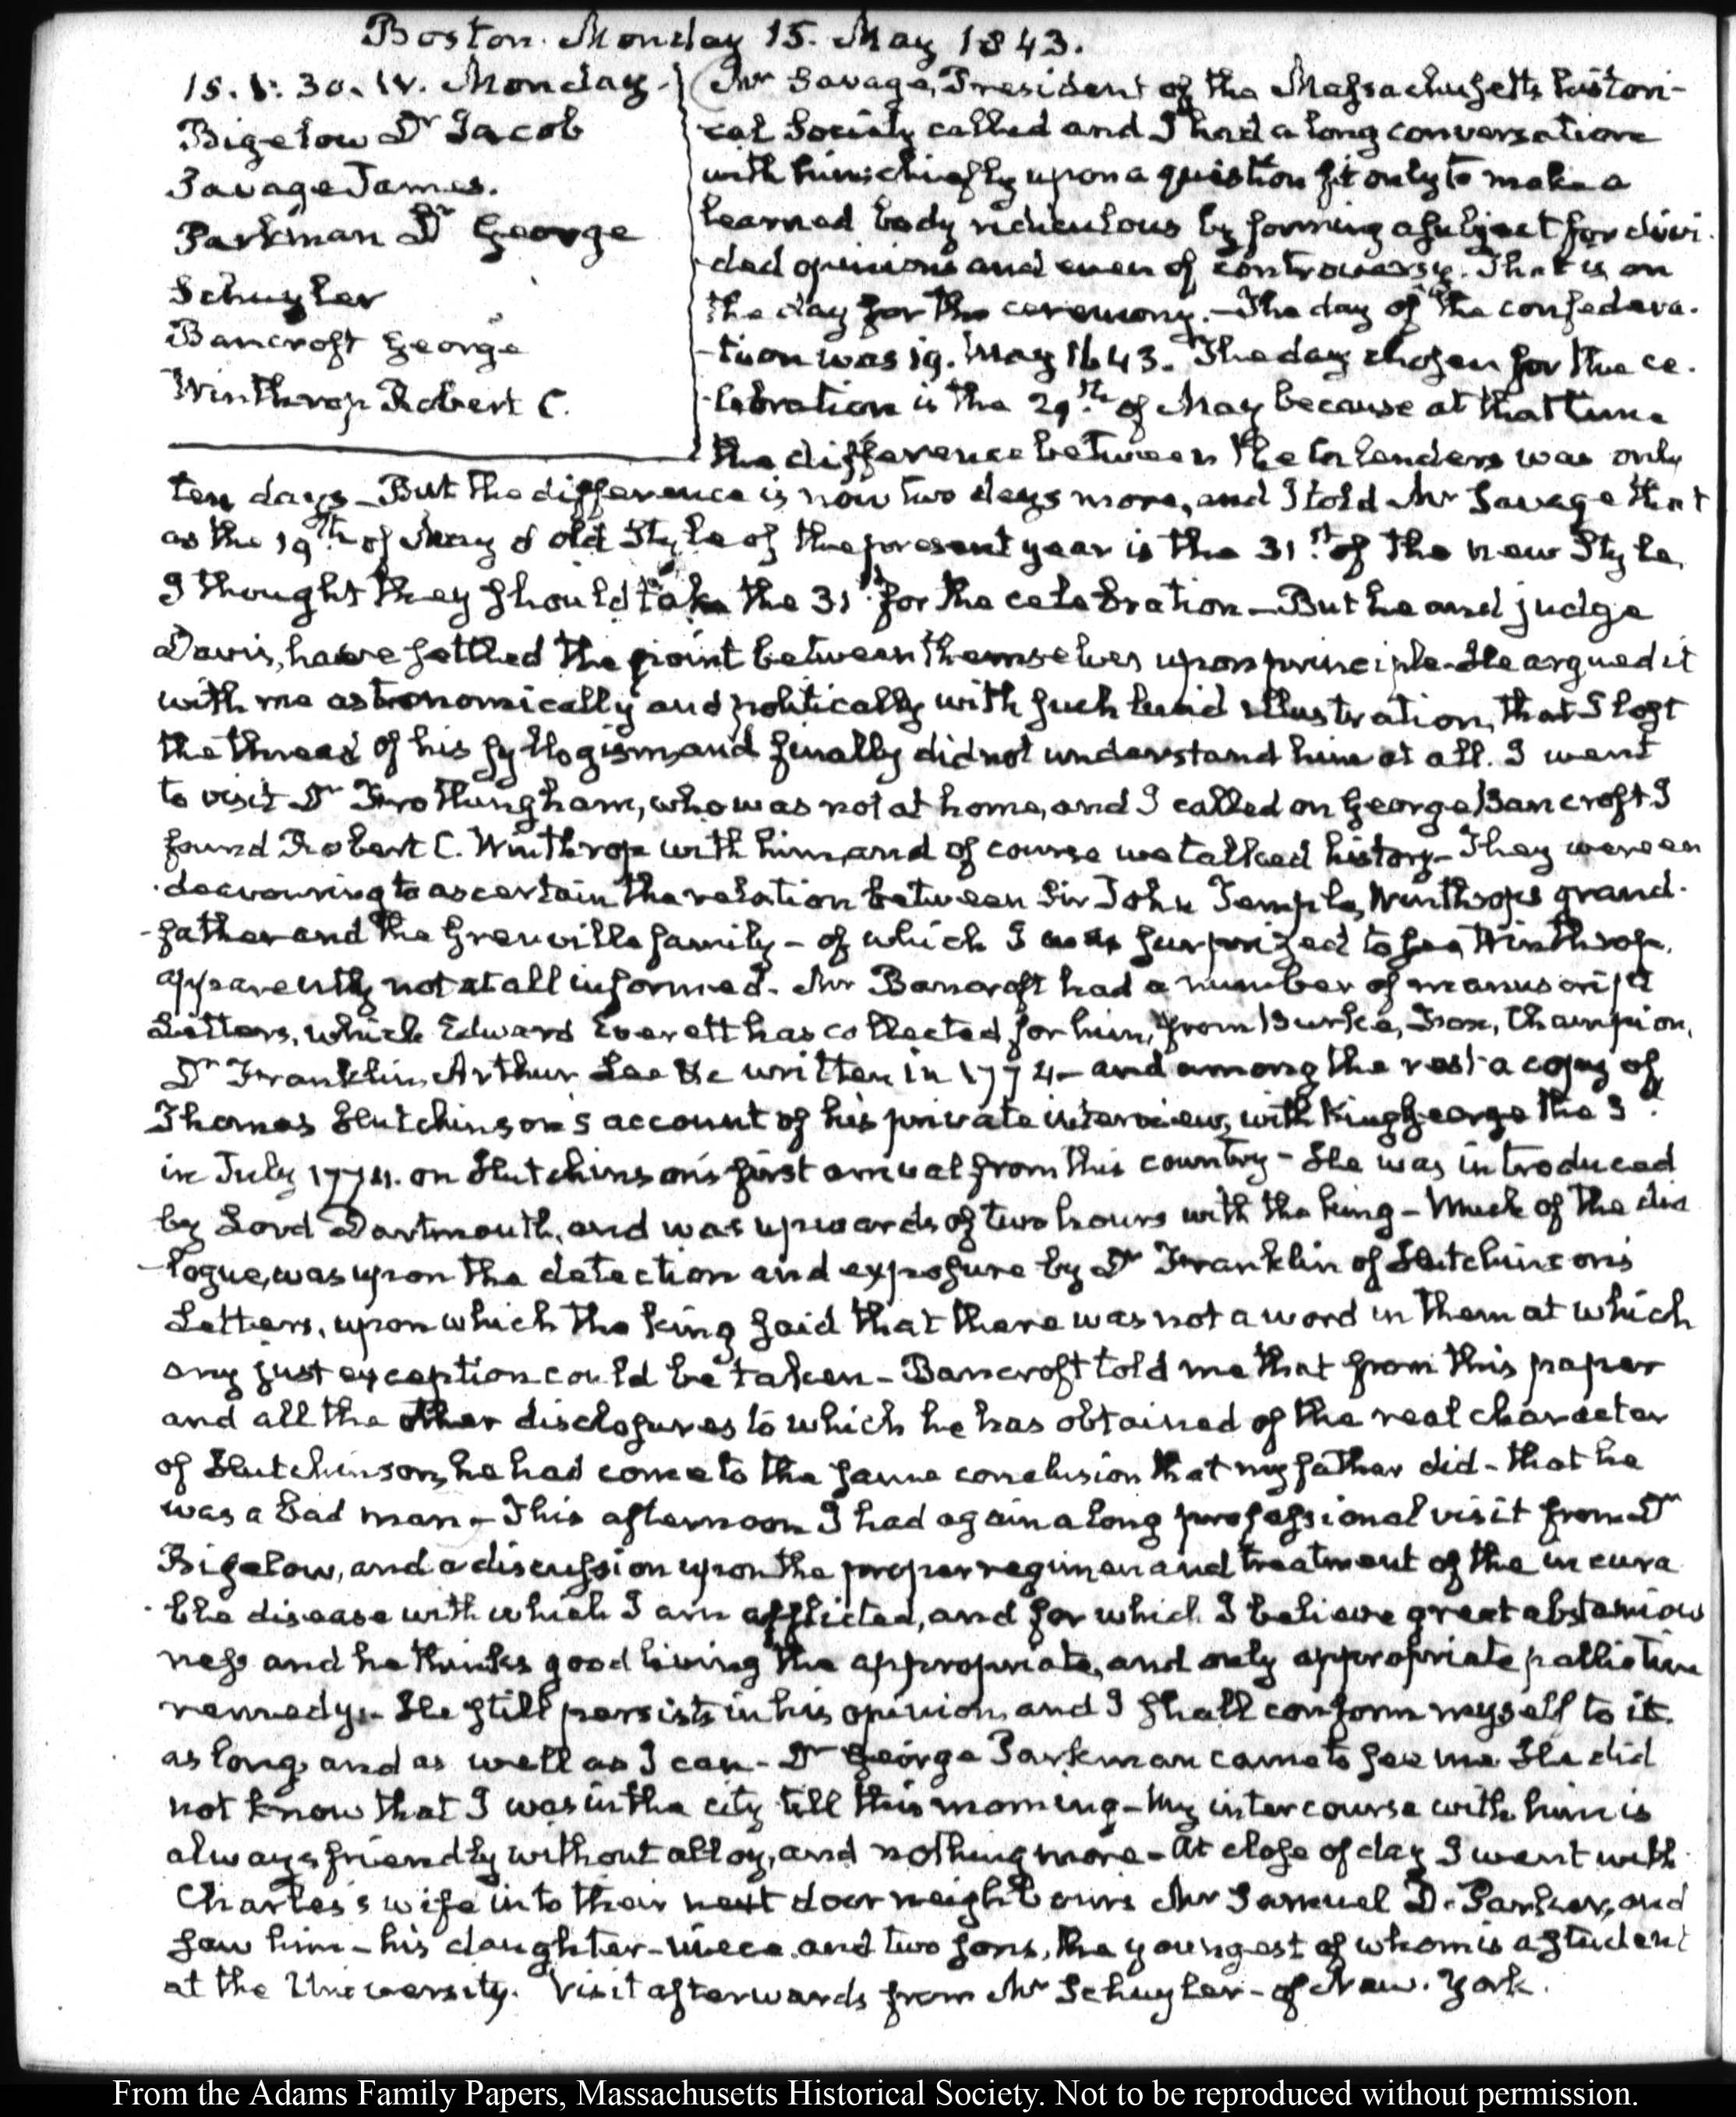 Boston. Monday 15. May 1843.
15. V: 30. IV. Monday.
Bigelow Dr Jacob
Savage James.
Parkman Dr George
Schuyler
Bancroft George
Winthrop Robert C.
Mr Savage, President of the Massachusetts histori-
cal Society called and I had a long conversation
with him chiefly upon a question fit only to make a
learned body ridiculous by forming a subject for divi-
ded opinions and even of controversy. That is on
the day for the ceremony.—The day of the confedera-
-tion was 19. May 1643. The day chosen for the ce-
-lebration is the 29.th of May because at that time
the difference between the Calenders was only
ten days—But the difference is now two days more, and I told Mr Savage that
as the 19th of May old Style of the present year is the 31.st of the new Style,
I thought they should take the 31st for the celebration—But he and judge
Davis, have settled the point between themselves upon principle—He argued it
with me astronomically and politically with such lucid illustration, that I lost
the thread of his syllogism, and finally did not understand him at all. I went
to visit Dr Frothingham, who was not at home, and I called on George Bancroft. I
found Robert C. Winthrop with him, and of course we talked history—They were en-
deavouring to ascertain the relation between Sir John Temple, Winthrop's grand-
-father and the Grenville family—of which I was surprized to see Winthrop,
apparently not at all informed. Mr Bancroft had a number of manuscript
Letters, which Edward Everett has collected for him, from Burke, Fox, Champion,
Dr Franklin, Arthur Lee &c written in 1774—and among the rest a copy of
Thomas Hutchinson's account of his private interview, with King George the 3d.
in July 1774. on Hutchinson's first arrival from this country—He was introduced
by Lord Dartmouth, and was upwards of two hours with the king—Much of the dia
-logue, was upon the detection and exposure by Dr Franklin of Hutchinson's
Letters, upon which the king said that there was not a word in them at which
any just exception could be taken—Bancroft told me that from this paper
and all the other disclosures to which he has obtained of the real character
of Hutchinson, he had come to the same conclusion that my father did—that he
was a bad man—This afternoon I had again a long professional visit from Dr
Bigelow, and a discussion upon the proper regimen and treatment of the incura
-ble disease with which I am afflicted, and for which I believe great abstemious
ness and he thinks good living the appropriate, and only appropriate palliative
remedy.—He still persists in his opinion, and I shall conform myself to it.
as long and as well as I can—Dr George Parkman came to see me He did
not know that I was in the city till this morning—My intercourse with him is
always friendly without alloy, and nothing more—At close of day I went with
Charles's wife into their next door neighbours Mr Samuel D. Parker, and
saw him—his daughter—niece and two sons, the youngest of whom is a student
at the University. Visit afterwards from Mr Schuyler—of New-York.
From the Adams Family Papers, Massachusetts Historical Society. Not to be reproduced without permission.